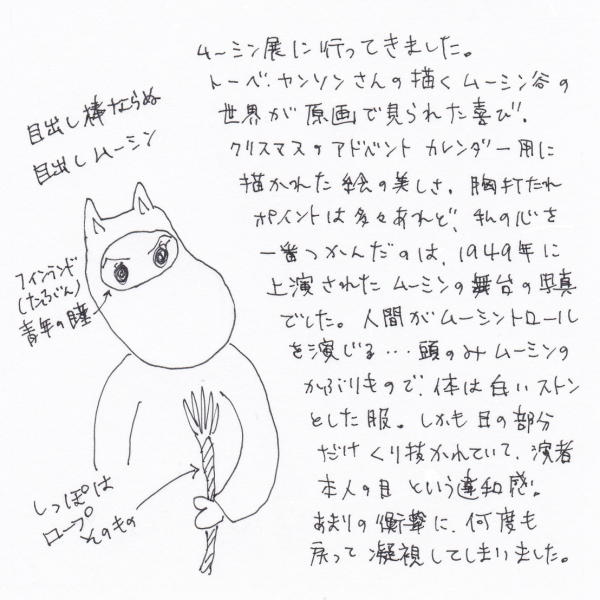 ムーミン展に行ってきました。
トーベ・ヤンソンさんの描くムーミン谷の
世界が原画で見られた喜び。
クリスマスのアドベントカレンダー用に
描かれた絵の美しさ。胸打たれ
ポイントは多々あれど、私の心を
一番つかんだのは、1949年に
上演されたムーミンの舞台の写真
でした。人間がムーミントロール
を演じる…頭のみムーミンの
かぶりもので、体は白いストン
とした服。しかも目の部分
だけくり抜かれていて、演者
本人の目という違和感。
あまりの衝撃に、何度も
戻って凝視してしまいました。
目出し棒ならぬ
目出しムーミン
フィンランド
青年の瞳
しっぽは
ロープ
そのもの